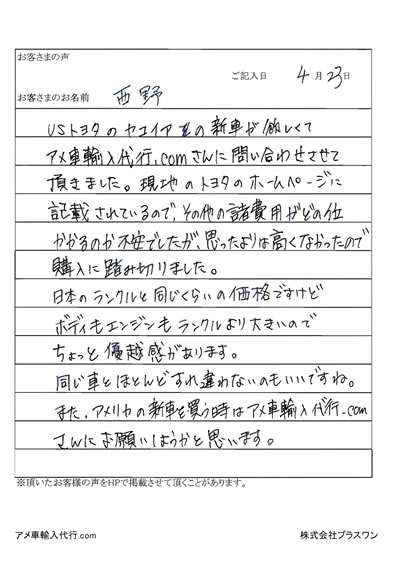 お客さまの声
ご記入日 4月23日
お客さまのお名前 西野
USトヨタのセコイアの新車が欲しくて
アメ車輸入代行.comさんに問い合わせさせて
頂きました。現地のトヨタのホームページに
記載されているので、その他の諸費用がどの位
かかるのか不安でしたが、思ったよりは高くなかったので
購入に踏み切りました。
日本のランクルと同じくらいの価格ですけど
ボディもエンジンもランクルより大きいので
ちょっと優越感があります。
同じ車とほとんどすれ違わないのもいいですね。
また、アメリカの新車を買う時はアメ車輸入代行.com
さんにお願いしようかと思います。
※頂いたお客様の声をHPで掲載させて頂くことがあります。
アメ車輸入代行.com 株式会社プラスワン